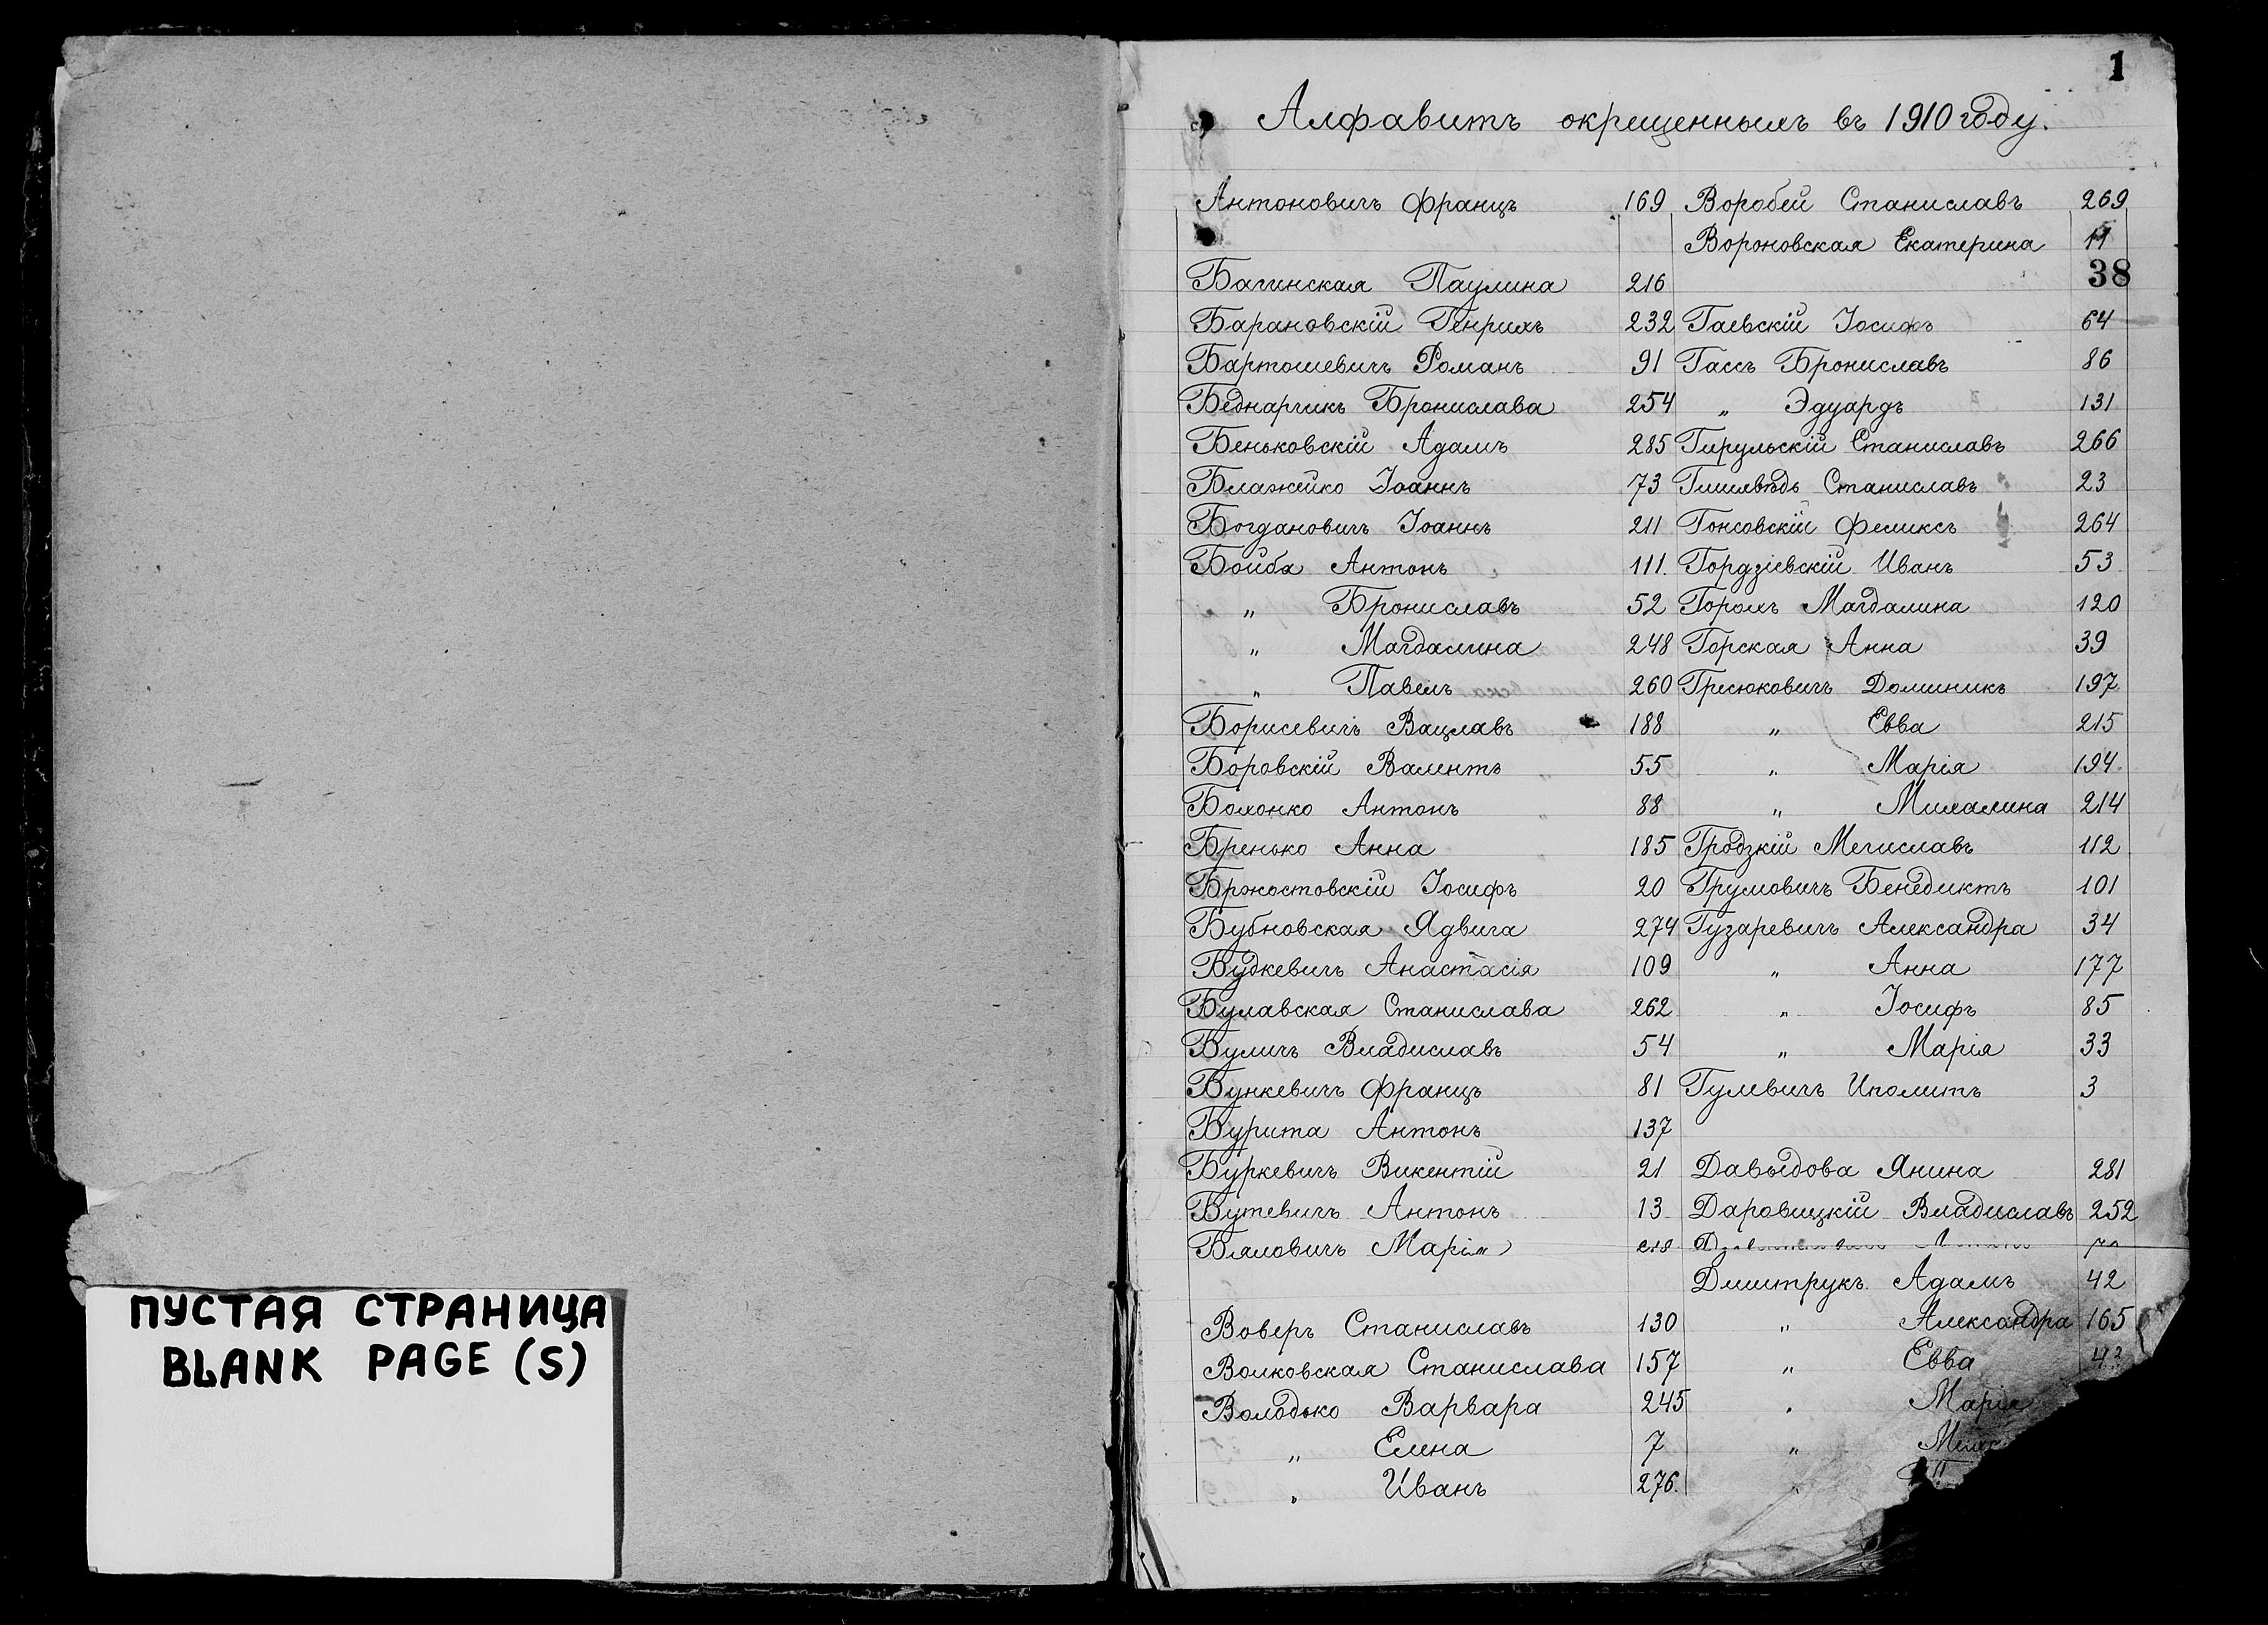 ПУСТАЯ СТРАНИЦА
BLANK PAGE (S)
1
Алфавитъ окрещеннымъ въ 1910 году.
Антоновичъ Францъ 169
Багинская Паулина 216
Барановскій Генрихъ 232
Бартошевичъ Романъ 91
Беднарчикъ Бронислава 254
Беньковскій Адамъ 285
Блажейко Іоаннъ 73
Богдановичъ Іоаннъ 211
Бойба Антонъ 111.
„ Брониславъ 52
„ Магдалина 248
„ Павелъ 260
Борисевичъ Вацлавъ 188
Боровскій Валентъ 55
Бохонко Антонъ 88
Бренько Анна 185
Бржостовскій Іосифъ 20
Бубновская Ядвига 274
Будкевичъ Анастасія 109
Булавская Станислава 262
Буличъ Владиславъ 54
Бункевичъ Францъ 81
Бурита Антонъ 137
Буркевичъ Викентій 21
Бутевичъ Антонъ 13
Бяловичъ Марія
Воверъ Станиславъ 130
Волковская Станислава 157
Володько Варвара 245
„ Елена 7
„ Иванъ 276.
Воробей Станиславъ 269
Вороновская Екатерина 11
38
Гаевскій Іосифъ 64
Гассъ Брониславъ 86
„ Эдуардъ 131
Гирульскій Станиславъ 266
Станиславъ 23
Гонсовскій Феликсъ 264
Гордзіевскій Иванъ 53
Горохъ Магдалина 120
Горская Анна 39
Гресюковичъ Доминикъ 197
„ Евва 215
„ Марія 194
„ Михалина 214
Гродзкій Мечиславъ 112
Грумовичъ Бенедиктъ 101
Гузаревичъ Александра 34
„ Анна 177
„ Іосифъ 85
„ Марія 33
Гулевичъ Иполитъ 3
Давыдова Янина 281
Даровицкій Владиславъ 252
Дмитрукъ Адамъ 42
„ Александра 165
„ Евва
„ Марія
„
„